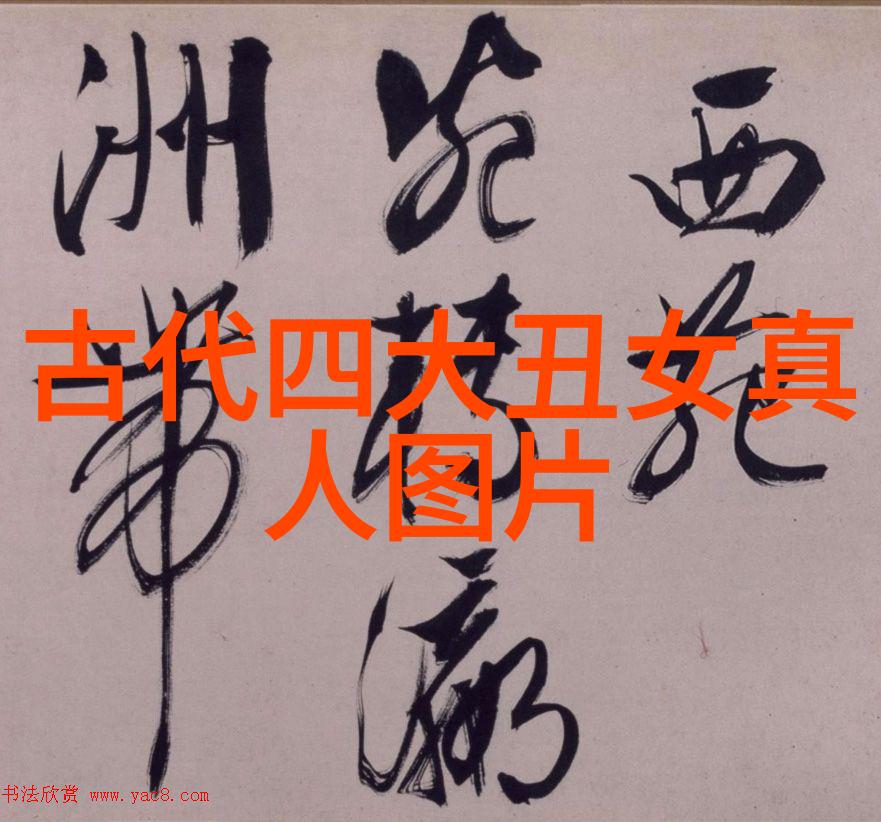 西苑
瀛
洲帶
古代四大丑女真
人图片
书法欣赏 www.yac8.com